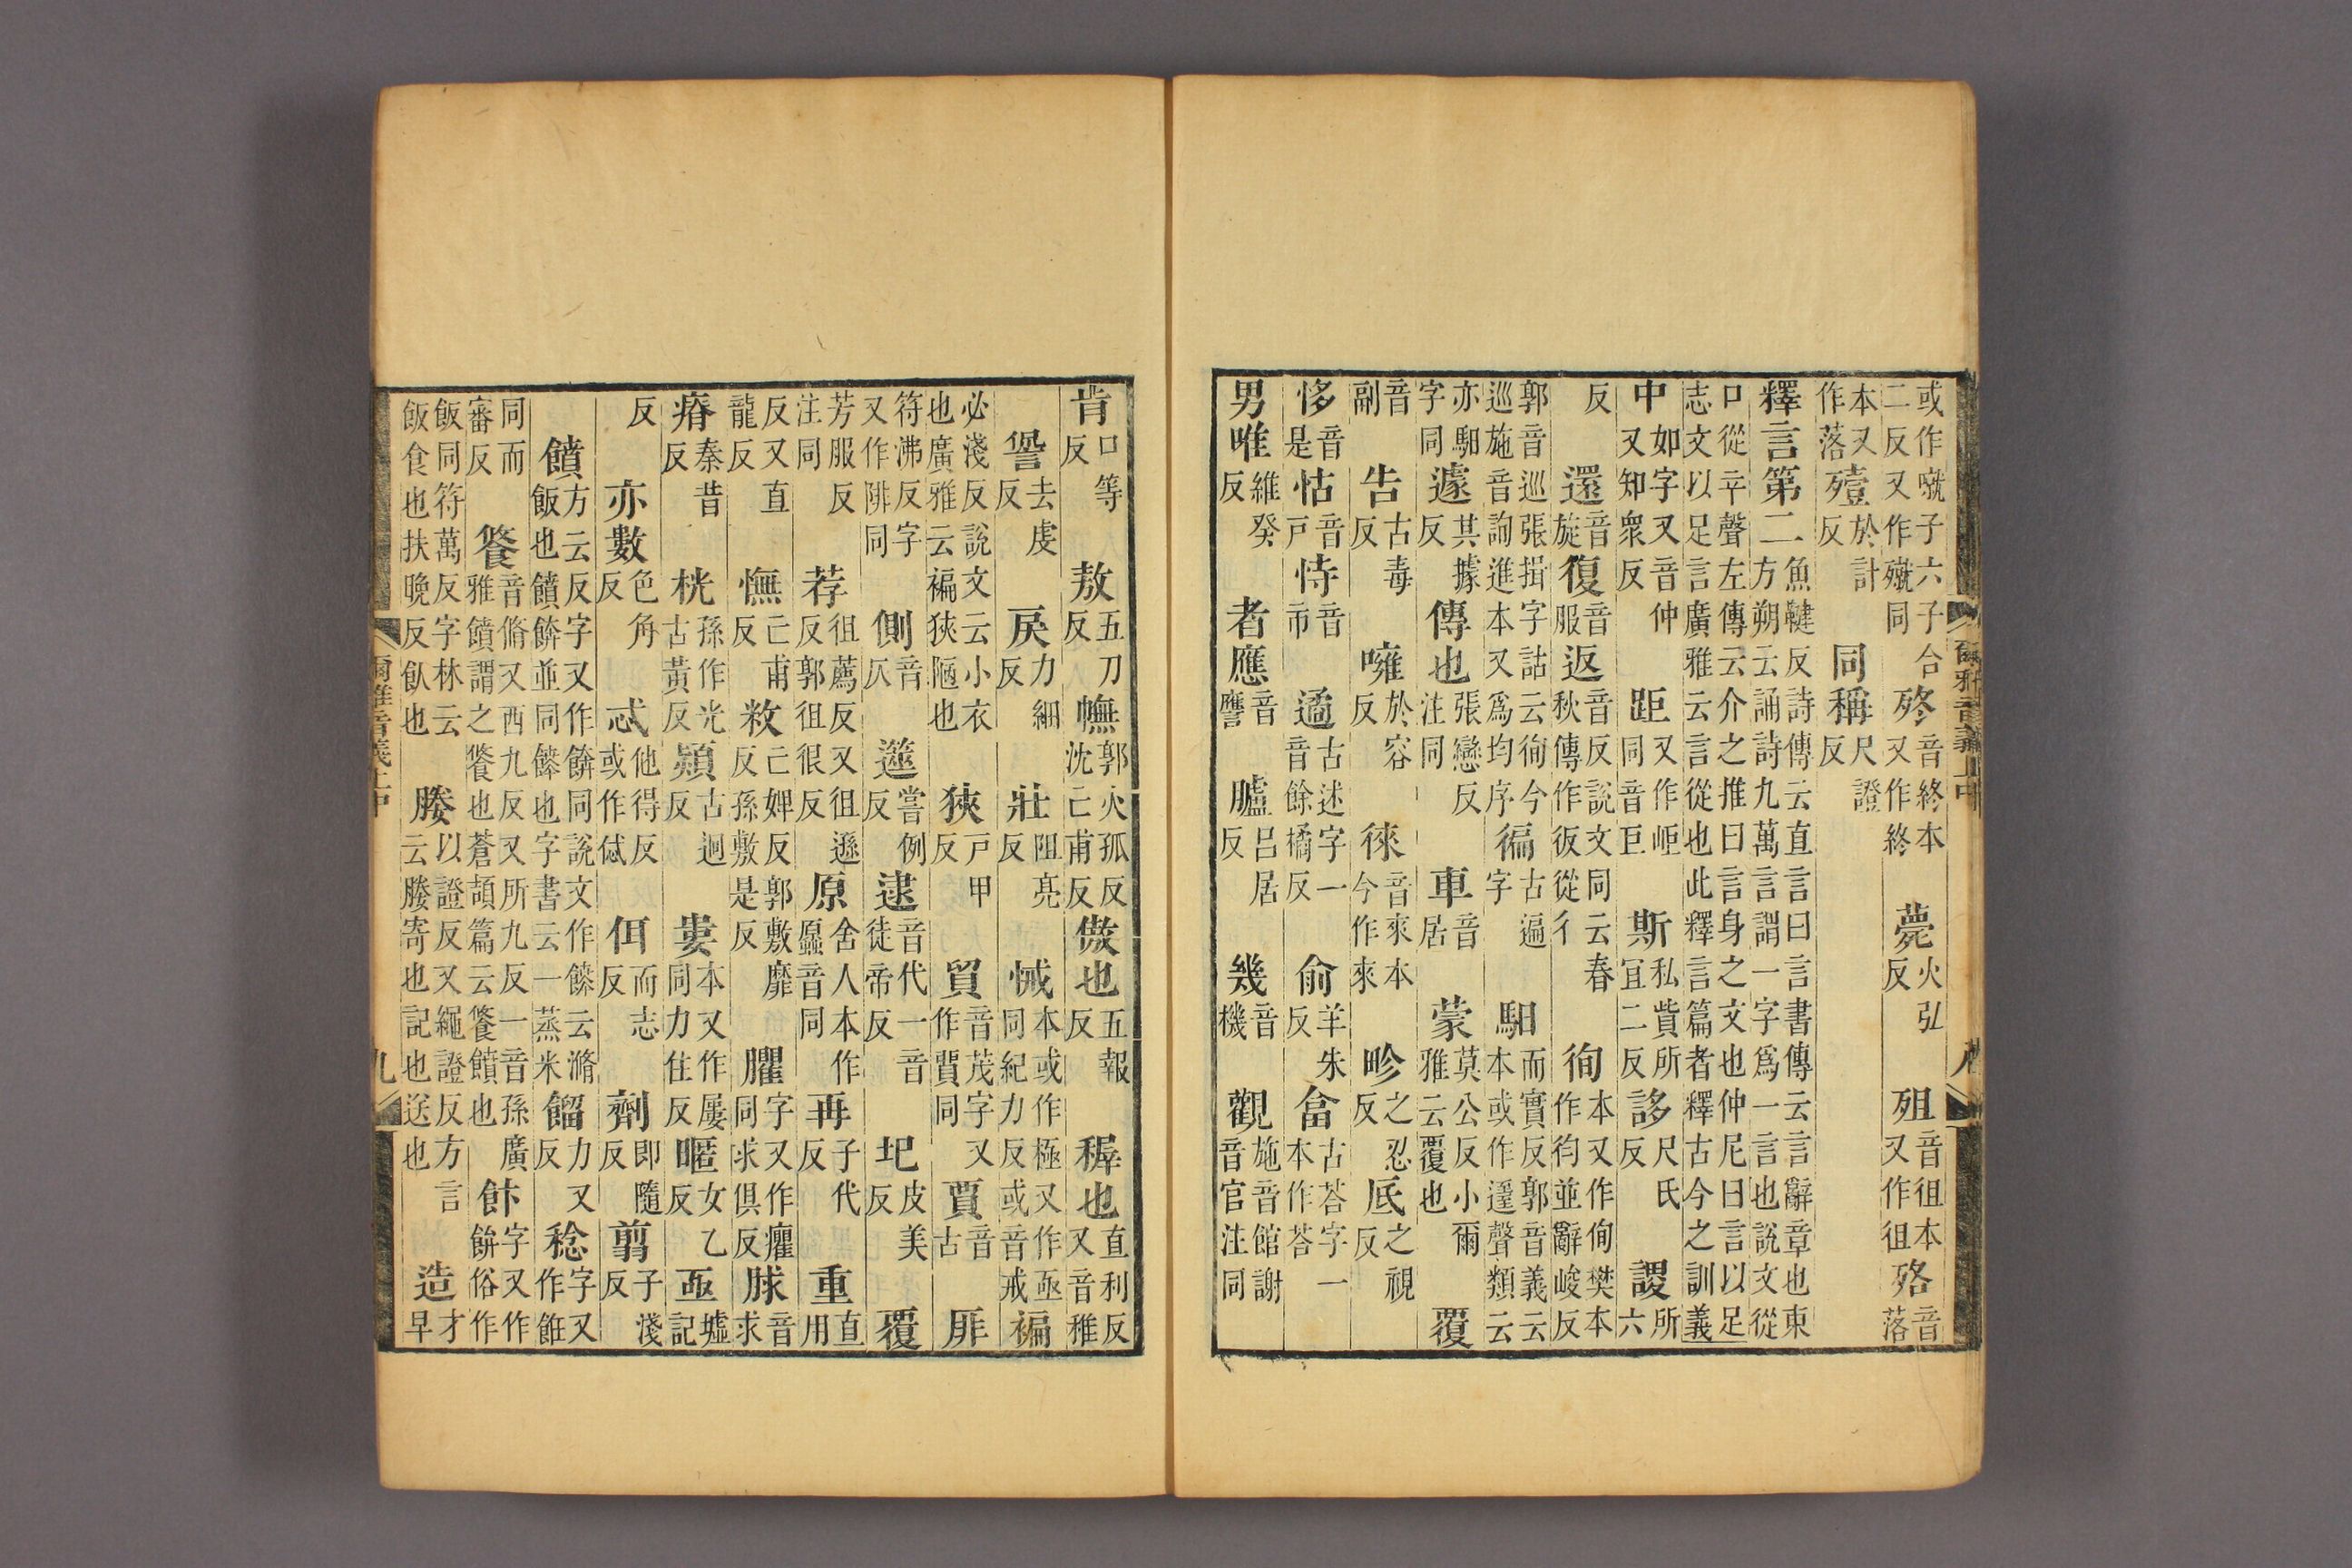 或作噈子六子合二反又作殧同𣧩音終本又作終薨火弘反殂音徂本又作徂㱠音落
本又作落殪於計反同稱尺證反
釋言第二魚鞬反詩傳云直言曰言書傳云言辭章也東方朔云誦詩九萬言謂一字爲一言也說文從
口從䇂聲左傳云介之推曰言身之文也仲尼曰言以足志文以足言廣雅云言從也此釋言篇者釋古今之訓義
中如字又音仲又知衆反距又作岠同音巨斯私貲所宜二反誃尺氏反謖所六
反還音旋復音服返音反說文同云春秋傳作彶從彳徇本又作侚樊本作徇並辭峻反
郭音巡張揖字詁云徇今巡施音詢進本又爲均序徧古遍字馹而實反郭音義云本或作遳聲類云
亦馹字同遽其據反傳也張戀反注同車音居蒙莫公反小爾雅云覆也覆
音副告古毒反噰於容反徠音來本今作來畛之忍反厎之視反
恀音是怙音戶恃音市遹古述字一音餘橘反俞羊朱反畣古荅字一本作荅
男唯維癸反者應音譍臚呂居反幾音機觀施音館謝音官注同
爾雅音義上中
肯口等反敖五刀反幠郭火孤反沈亡甫反傲也五報反稺也直利反又音稚
諐去虔反戾力細反壯阻亮反悈本或作極又作亟同紀力反或音戒褊
必淺反說文云小衣也廣雅云褊狹陋也狹戶甲反貿音茂字又作貿同賈音古厞
符沸反字又作陫同側音仄遾嘗例反逮音代一音徒帝反圮皮美反覆
芳服反注同荐徂薦反又徂遜反郭徂很反原舍人本作厵音同再子代反重直用
反又直龍反憮亡甫反敉亡婢反郭敷靡反孫敷是反臞字又作癯同求俱反脙音求
瘠秦昔反桄孫作光古黃反熲古迥反婁本又作屢同力住反暱女乙反亟墟記
反亦數色角反忒他得反或作㥾佴而志反劑即隨反翦子淺反
饙方云反字又作餴同說文作䬳云滫飯也饙餴並同䬳也字書云一蒸米餾力又反稔字又作餁
同而審反餐音脩又西九反又所九反一音孫廣雅饙謂之餐也蒼頡篇云餐饙也飰字又作餅俗作
飯同符萬反字林云飯食也扶晚反飤也媵以證反又繩證反方言云媵寄也記也送也造才早
爾雅音義上中
九